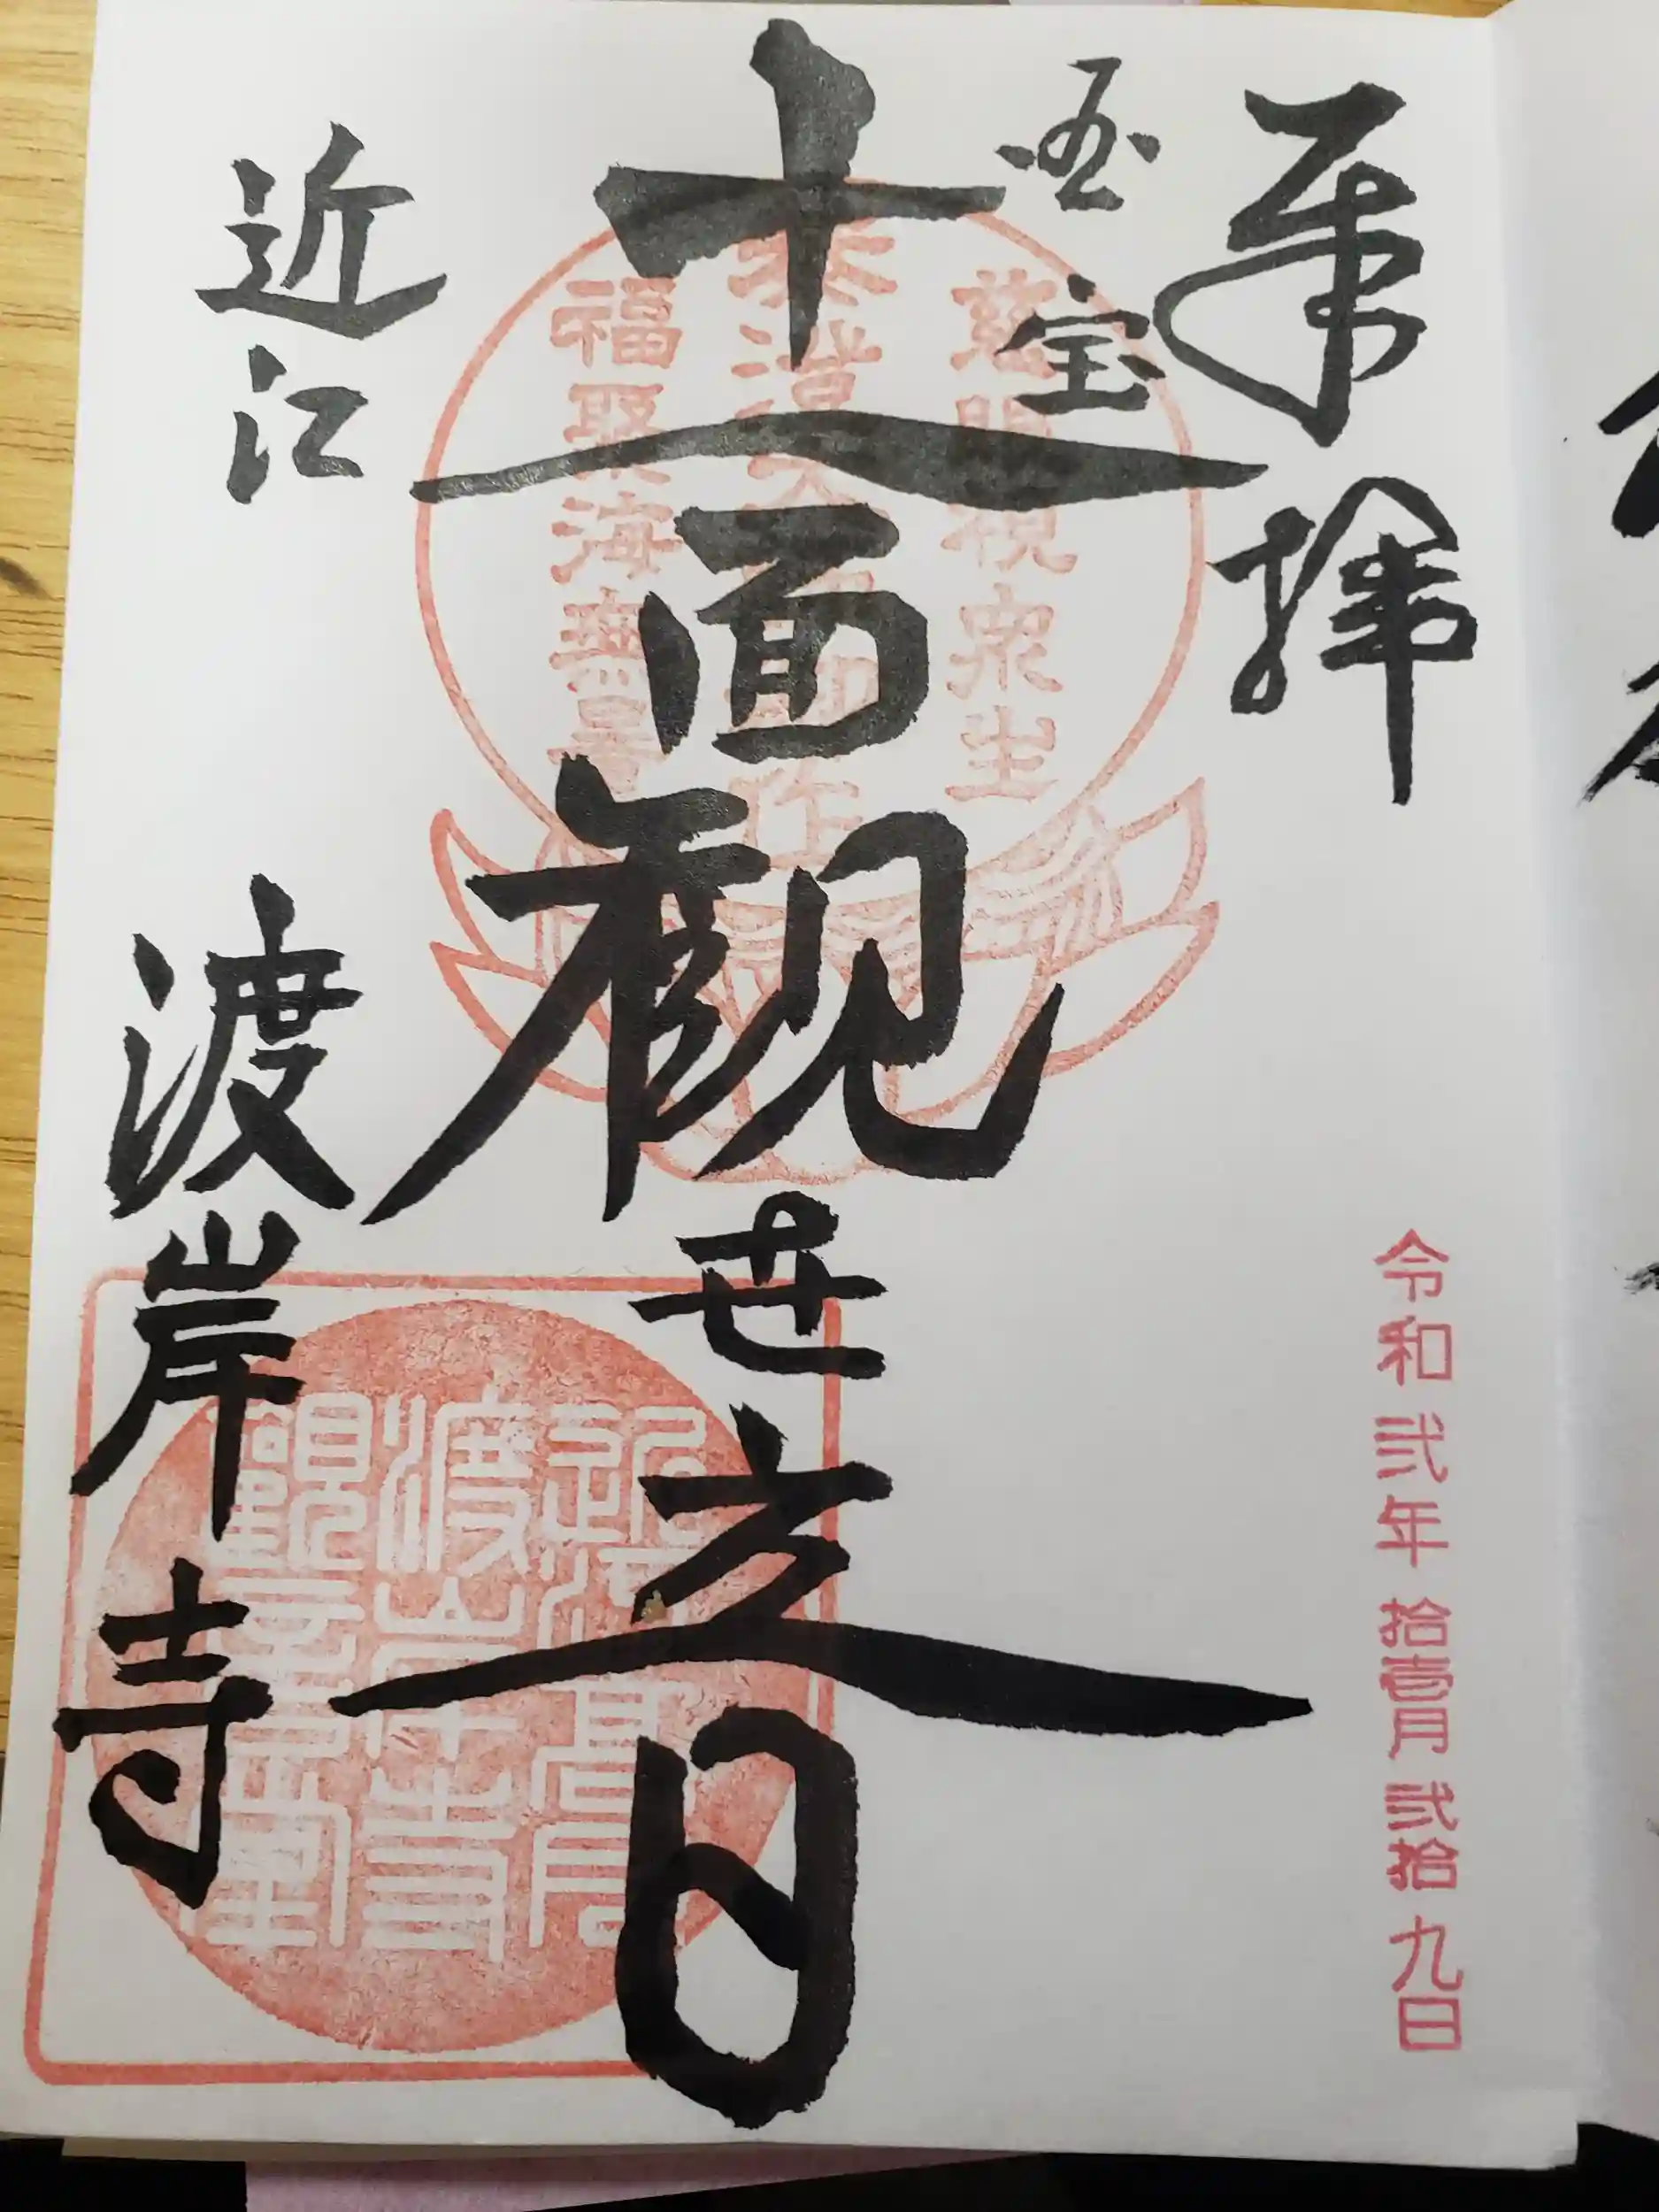 奉拝
令和弐年拾壹月弐拾九日
国宝
十一面観世音
慈眼視衆生
福聚海無量
近江
渡岸寺
渡岸寺
観音堂